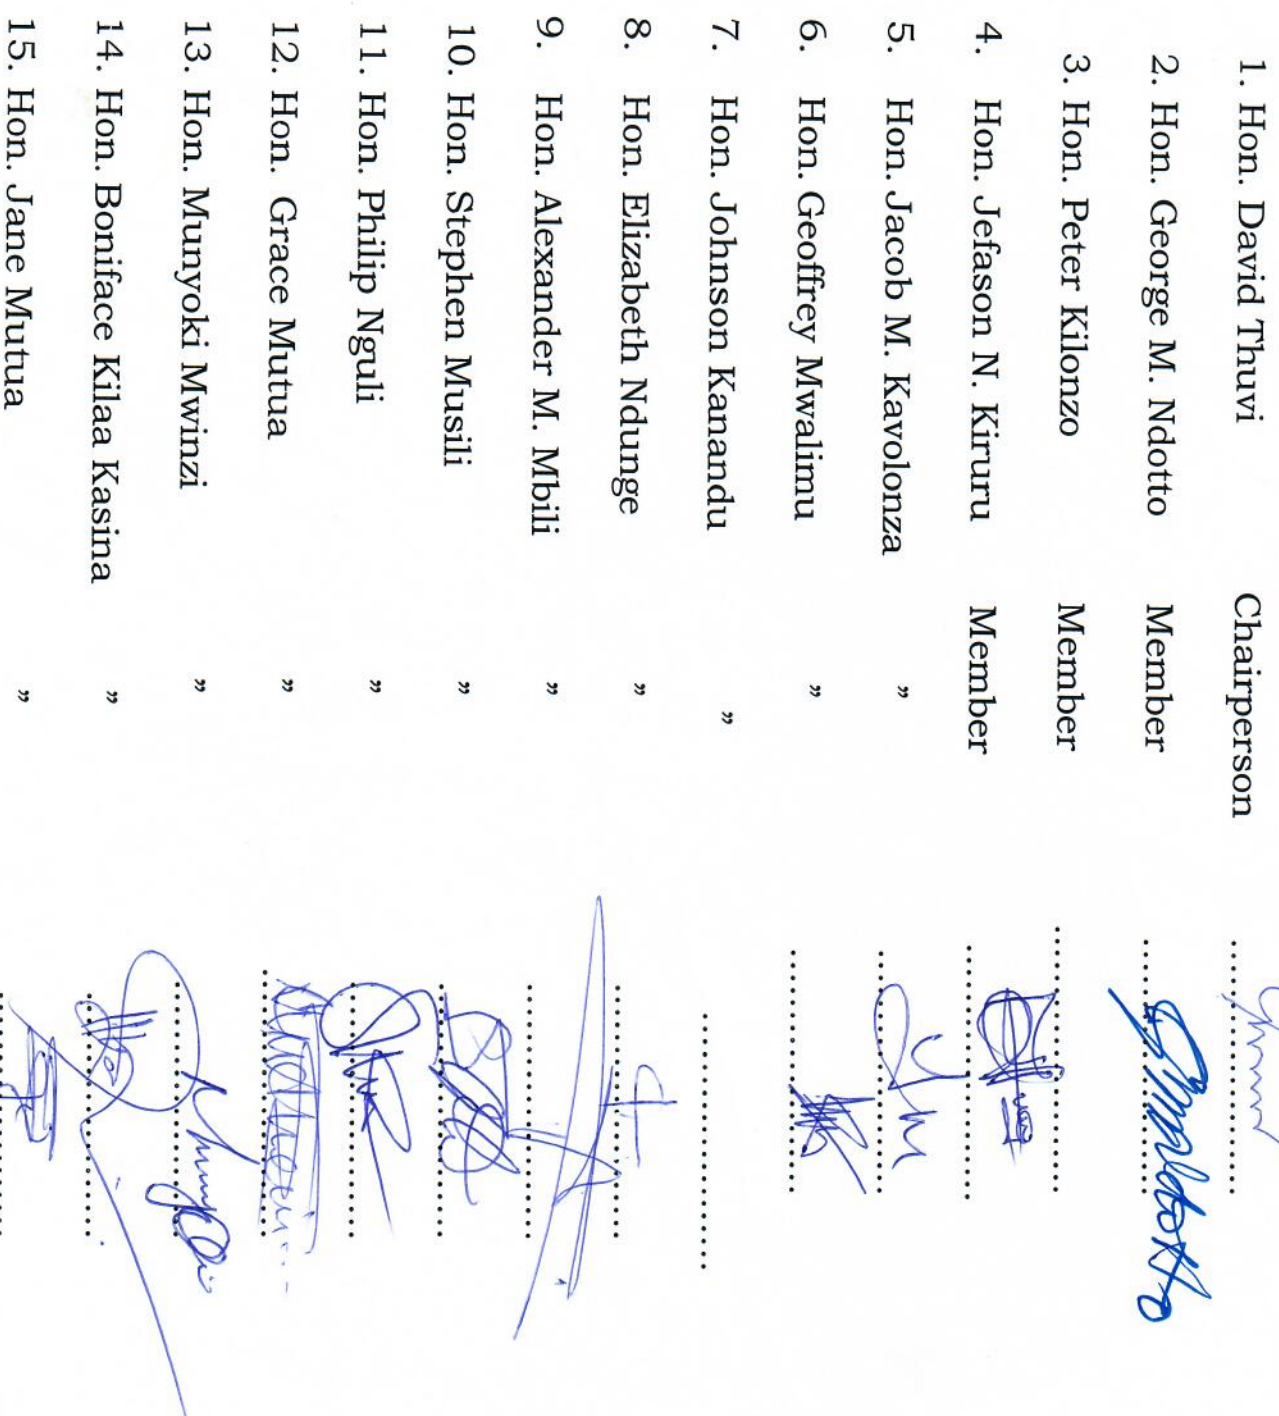 1. Hon. David Thuvi Chairperson ..........
2. Hon. George M. Ndotto Member ..........
3. Hon. Peter Kilonzo Member ..........
4. Hon. Jefason N. Kiruru Member ..........
5. Hon. Jacob M. Kavolonza ” ..........
6. Hon. Geoffrey Mwalimu ” ..........
7. Hon. Johnson Kanandu ” ..........
8. Hon. Elizabeth Ndunge ” ..........
9. Hon. Alexander M. Mbili ” ..........
10. Hon. Stephen Musili ” ..........
11. Hon. Philip Nguli ” ..........
12. Hon. Grace Mutua ” ..........
13. Hon. Munyoki Mwinzi ” ..........
14. Hon. Boniface Kilaa Kasina ” ..........
15. Hon. Jane Mutua ” ..........